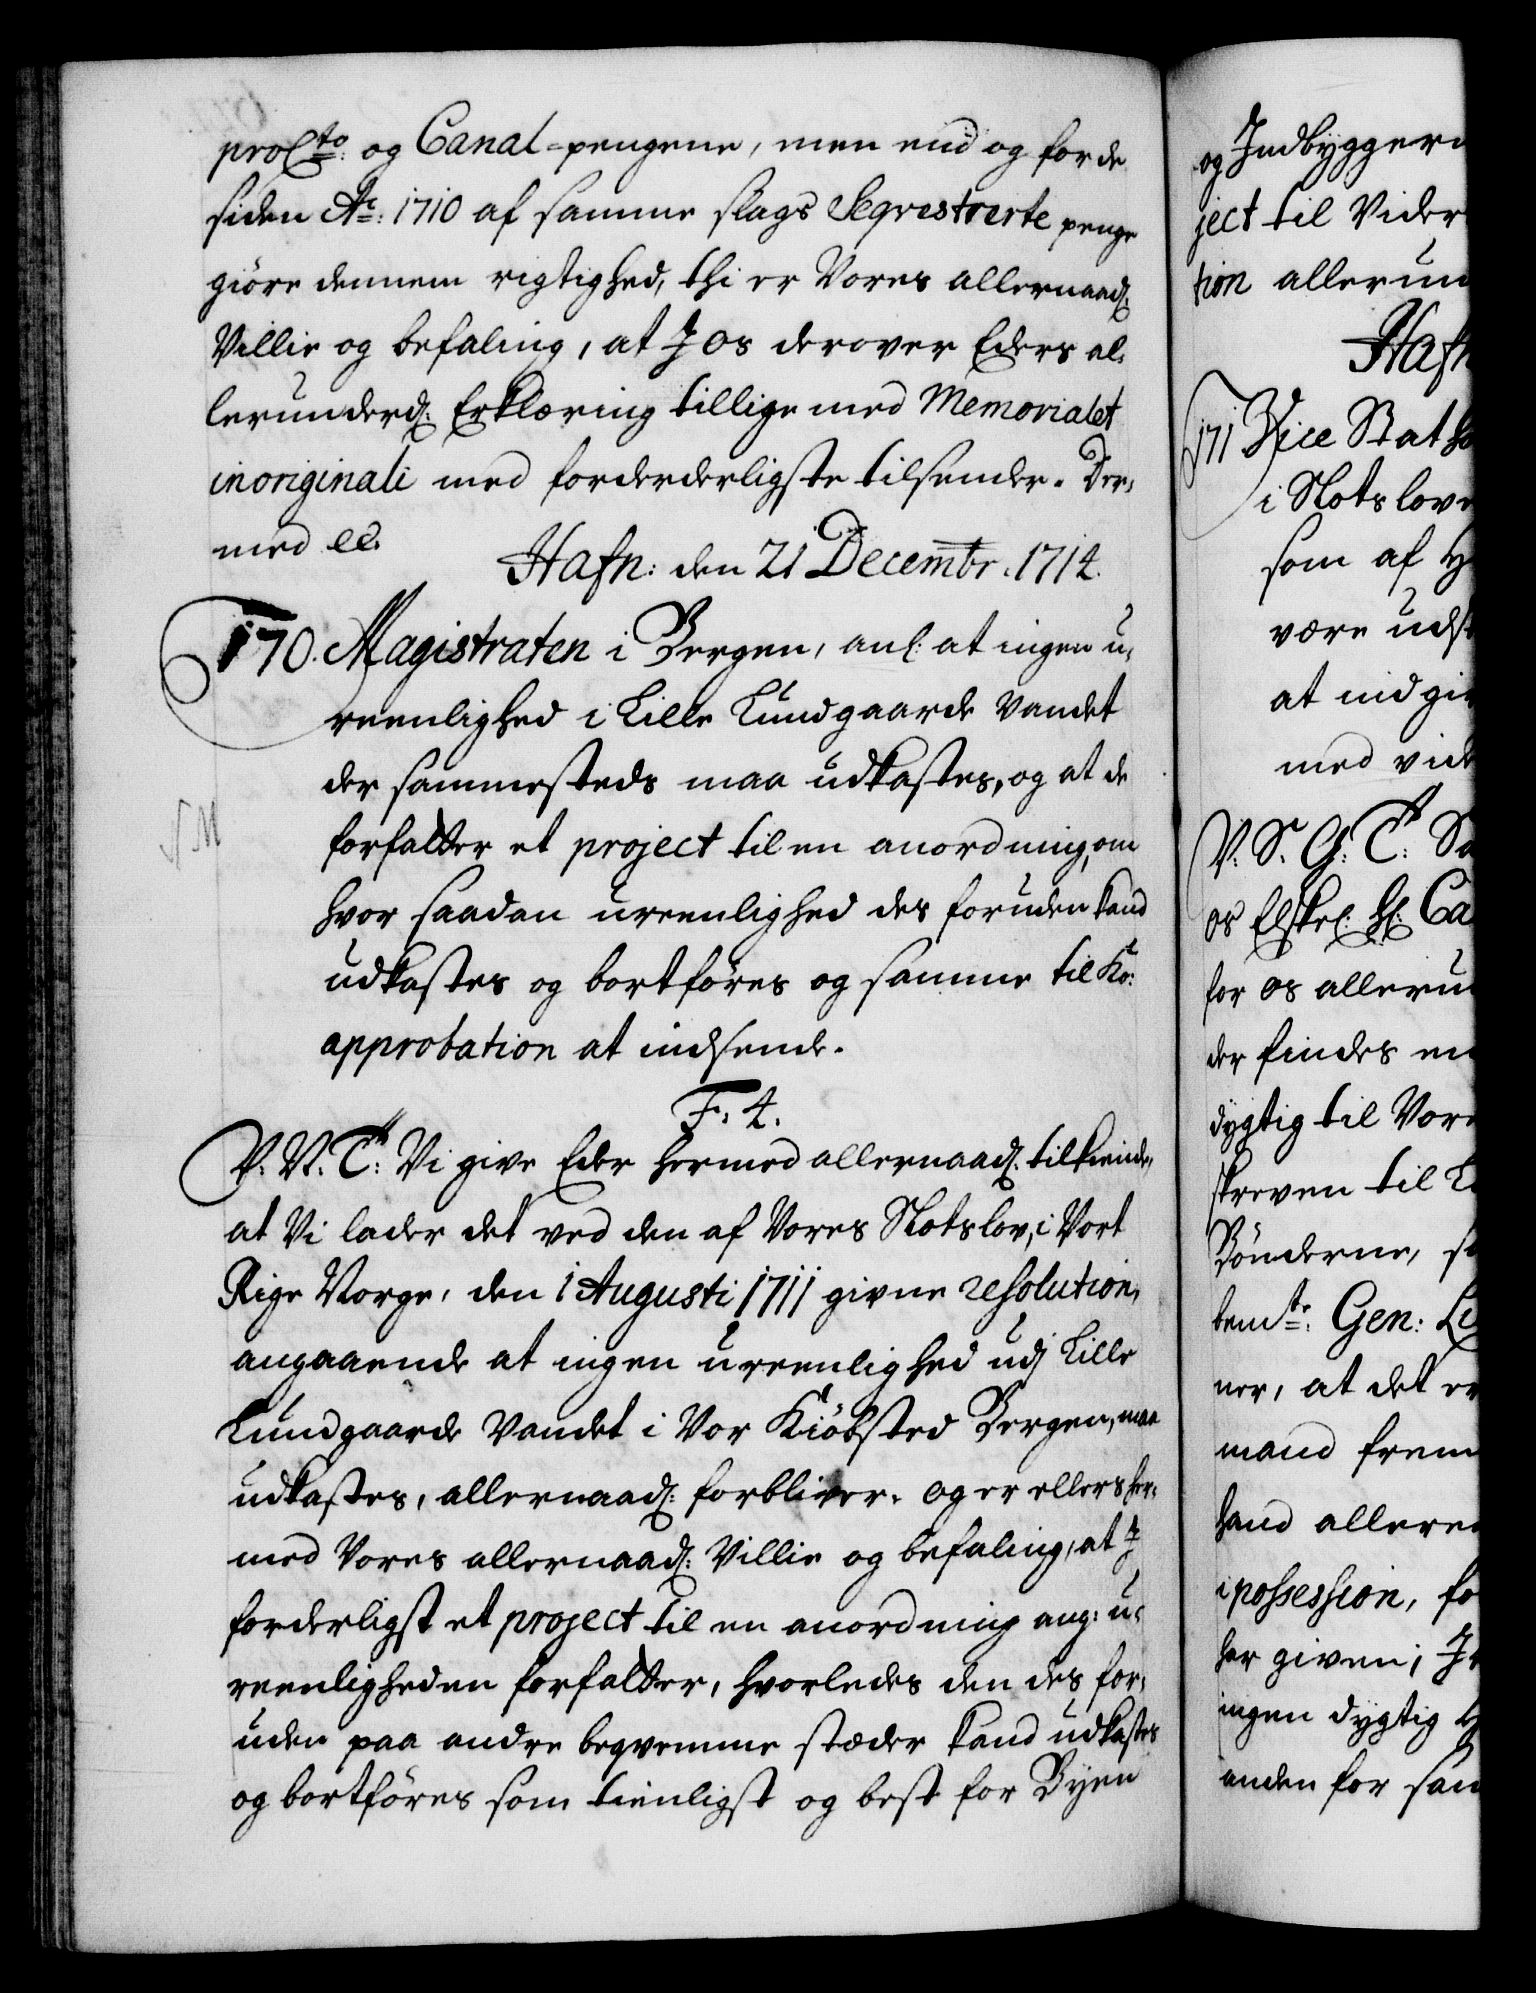 proc^to: og Canal-pengene, men end og for de
siden A^o: 1710 af samme slags Seqvestrerte penge
giöre dennem rigtighed, thi er Vores allernaad:
Villie og befaling, at I os derover Eders al-
lerunderd: Erklæring tillige med Memorialet
in originali med forderderligste tilsender. Der-
med etc.
Hafn: den 21 Decembr. 1714.
170. Magistraten i Bergen, anl: at ingen u-
reenlighed i Lille Lundgaards Vandet
der sammesteds maa udkastes, og at de
forfatter et project til en anordning, om
hvor saadan ureenlighed des foruden kand
udkastes og bortföres og samme til Ko:
approbation at indsende.
F. 4.
V. V. T: Vi give Eder hermed allernaad: tilkiende,
at Vi lader det ved den af Vores Slotslov, i Vort
Rige Norge, den 1 Augusti 1711 givne resolution,
angaaende at ingen ureenlighed udj Lille
Lundgaards Vandet i Vor Kiöbsted Bergen, maa
udkastes, allernaad: forbliver. og er ellers her-
med Vores allernaad: Villie og befaling, at I
forderligst et project til en anordning ang: u-
reenligheden forfatter, hvorledes den des for-
uden paa andre beqvemme stæder kand udkastes
og bortföres som tienligst og best for Byen
og Indbyggern
ject til Vider
tion allerun
Hafn
171 Vice Statho
i Slotslove
som af H
være udst
at indgiv
med vide
V. S. G: T: Sa
os Elskel: H: Ca
for os alleru
der findes en
dygtig til Vor
skreven til L
Bönderne, s
bem^te: Gen: Li
ner, at det er
mand frem
hand allere
i possession, fo
her given; I
ingen dygtig H
anden for saa